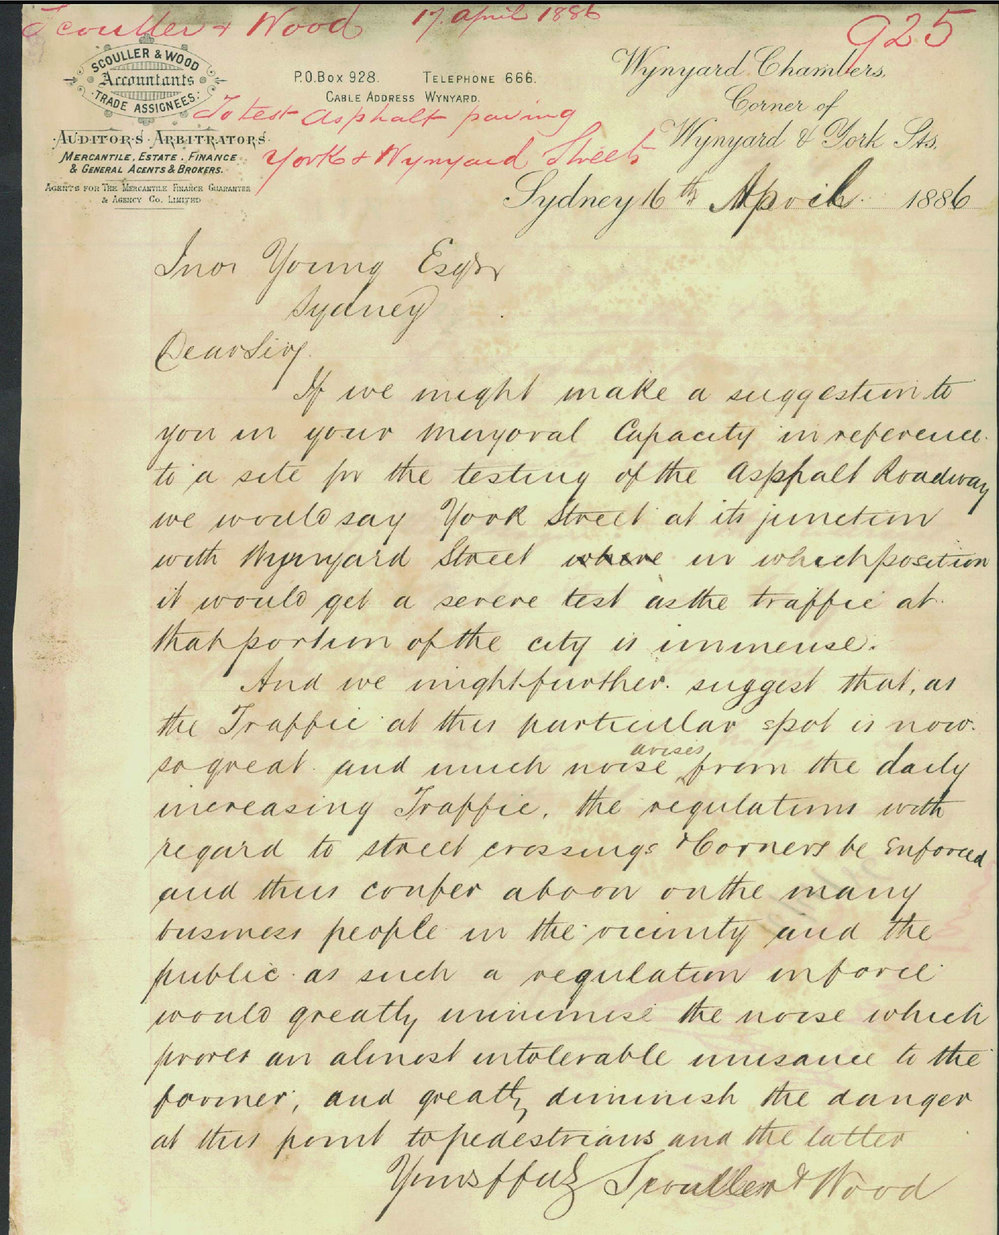 Scouller & Wood 17 April 1886
925
SCOULLER & WOOD
Accountants
TRADE ASSIGNEES.
AUDITORS. ARBITRATORS.
MERCANTILE, ESTATE, FINANCE
& GENERAL AGENTS & BROKERS.
AGENTS FOR THE MERCANTILE FINANCE GUARANTEE
& AGENCY CO. LIMITED
P.O. BOX 928. TELEPHONE 666.
CABLE ADDRESS WYNYARD.
To test asphalt paving
York & Wynyard Streets
Wynyard Chambers,
Corner of
Wynyard & York Sts.
Sydney 16th April 1886
Jno. Young Esqr
Sydney
Dear Sir,
If we might make a suggestion to
you in your Mayoral Capacity in reference
to a site for the testing of the Asphalt Roadway
we would say York Street at its junction
with Wynyard Street where in which position
it would get a severe test as the traffic at
that portion of the city is immense.
And we might further suggest that, as
the Traffic at this particular spot is now
so great and much noise arises from the daily
increasing Traffic, the regulations with
regard to street crossings & Corners be Enforced
and thus confer a boon on the many
business people in the vicinity and the
public as such a regulation in force
would greatly minimise the noise which
proves an almost intolerable nuisance to the
former, and greatly diminish the danger
at this point to pedestrians and the latter
Yours ffully Scouller & Wood